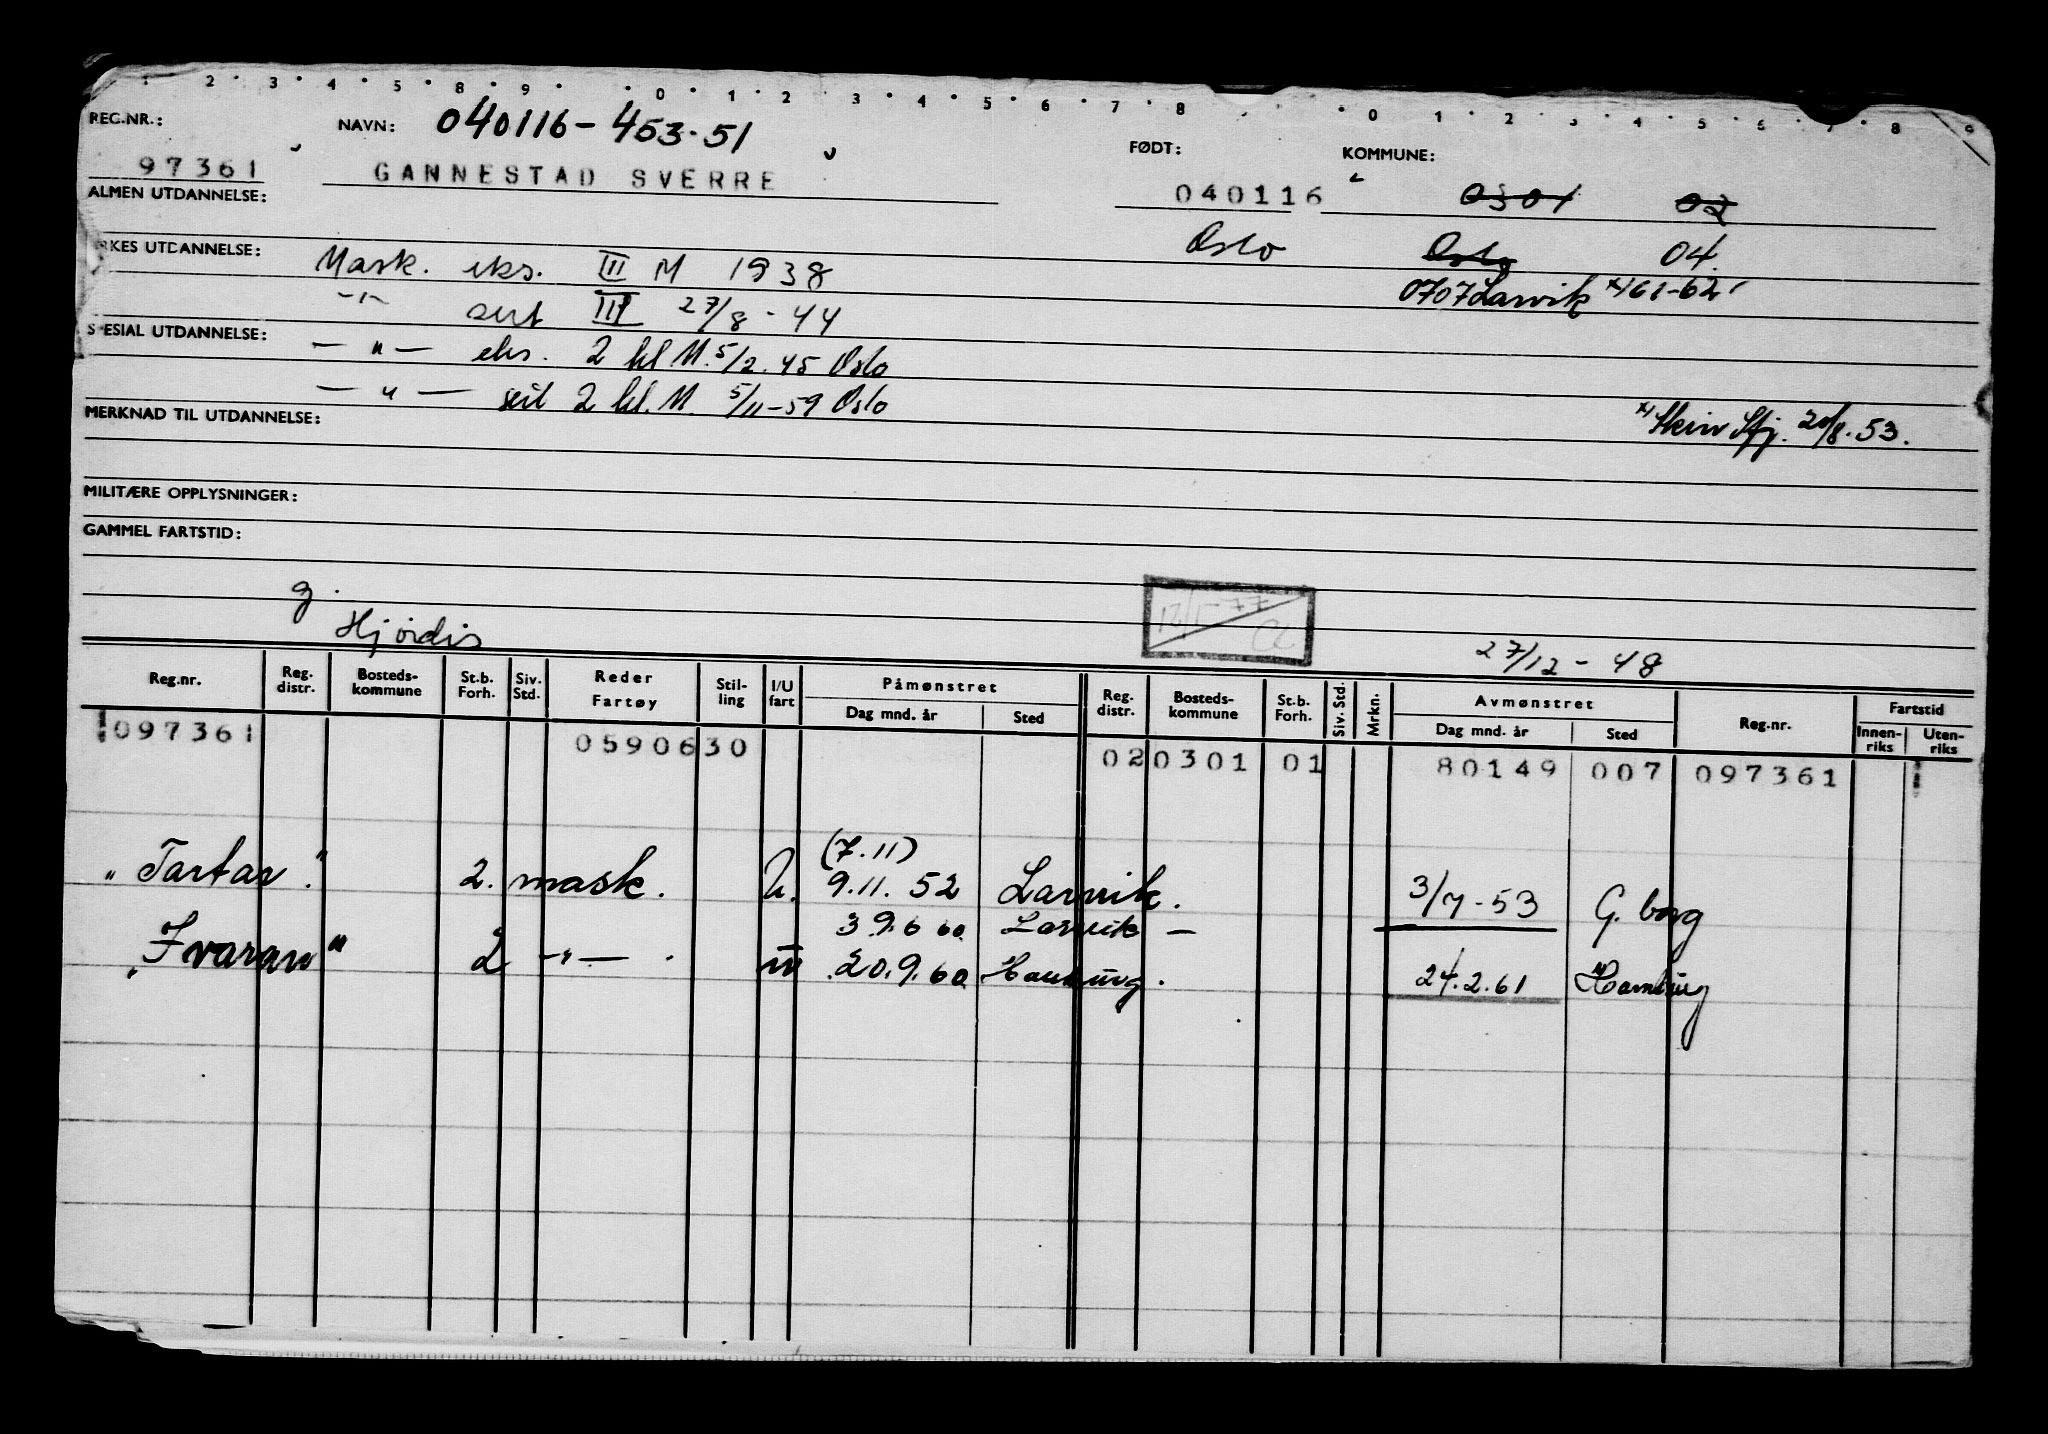 1 2 3 4 5 8 9 0 1 2 3 4 5 6 7 8 0 1 2 3 4 5 6 7 8 9
REG.NR.: NAVN: 040116-453-51 FØDT: KOMMUNE:
97361 GANNESTAD SVERRE 040116 0301 02
ALMEN UTDANNELSE: Oslo Oslo 04.
RKES UTDANNELSE: Mask. eks. III M 1938 0707 Larvik x) 61-62
-"- sert III 27/8-44
SPESIAL UTDANNELSE: -"- eks. 2 kl M. 5/2.45 Oslo
-"- sert 2 kl. M. 5/11-59 Oslo
MERKNAD TIL UTDANNELSE: 20/8.53.
MILITÆRE OPPLYSNINGER:
GAMMEL FARTSTID:
g.
Hjördis 27/12-48
Reg.nr. Reg. distr. Bosteds-kommune St.b. Forh. Siv. Std. Reder Fartøy Stil-ling I/U fart Påmønstret Dag mnd. år Sted Reg. distr. Bosteds-kommune St.b. Forh. Siv. Std. Mrkn. Avmønstret Dag mnd. år Sted Reg.nr. Fartstid Innen-riks Uten-riks
097361 0590630 02 0301 01 80149 007 097361
(7.11)
"Tartar". 2. mask. U. 9.11.52 Larvik. 3/7-53 G.borg
60 Larvik -
"Ivaran" 2 -"- . 20.9.60 Hamburg. 24.2.61 Hamburg